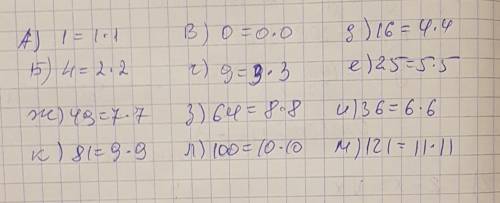 А) 1 = 1·1 В) 0 = 0·0 д) 16 = 4·4
Б) 4 = 2·2 г) 9 = 3·3 е) 25 = 5·5
ж) 49 = 7·7 з) 64 = 8·8 и) 36 = 6·6
к) 81 = 9·9 л) 100 = 10·10 м) 121 = 11·11